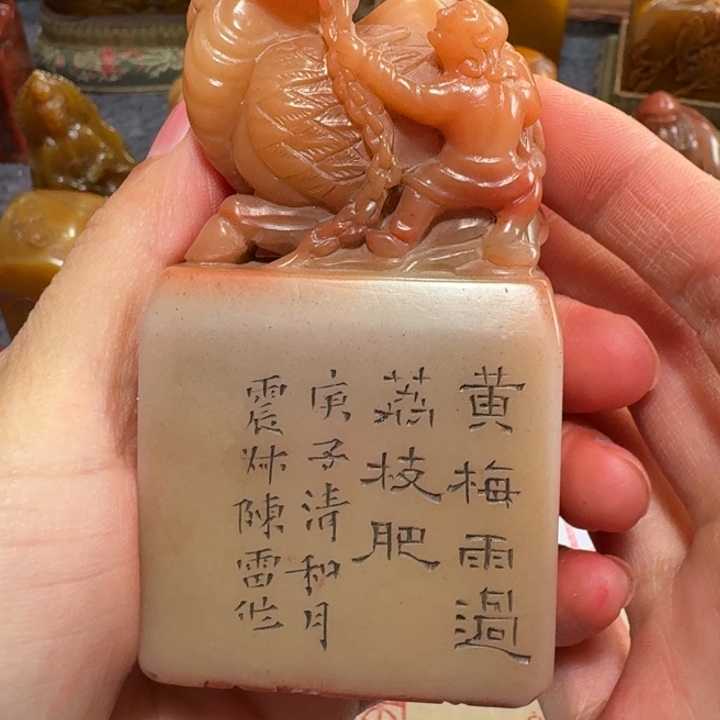 黄梅雨過
荔枝肥
庚子清和月
震叔陳雷作